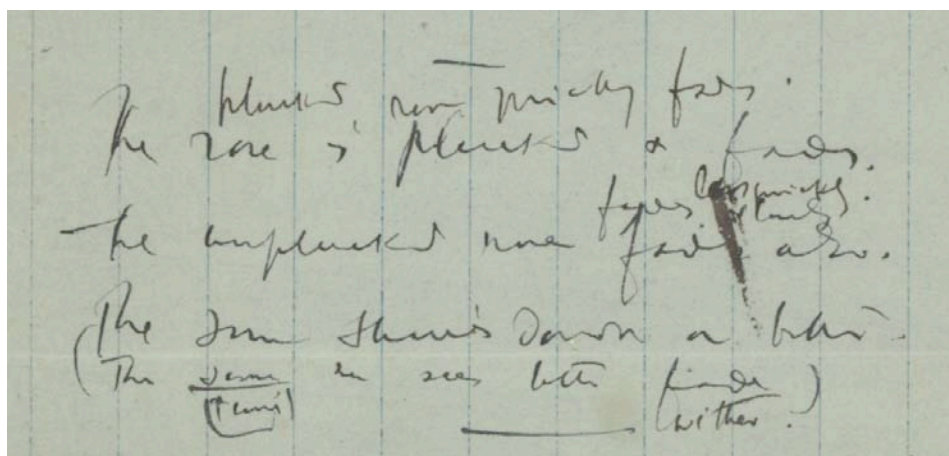 plucked rose quickly fades.
The rose is plucked & fades.
fades less quickly.
The unplucked rose fades also.
The sun shines down on both.
(The sun sees both fade)
(wither.)